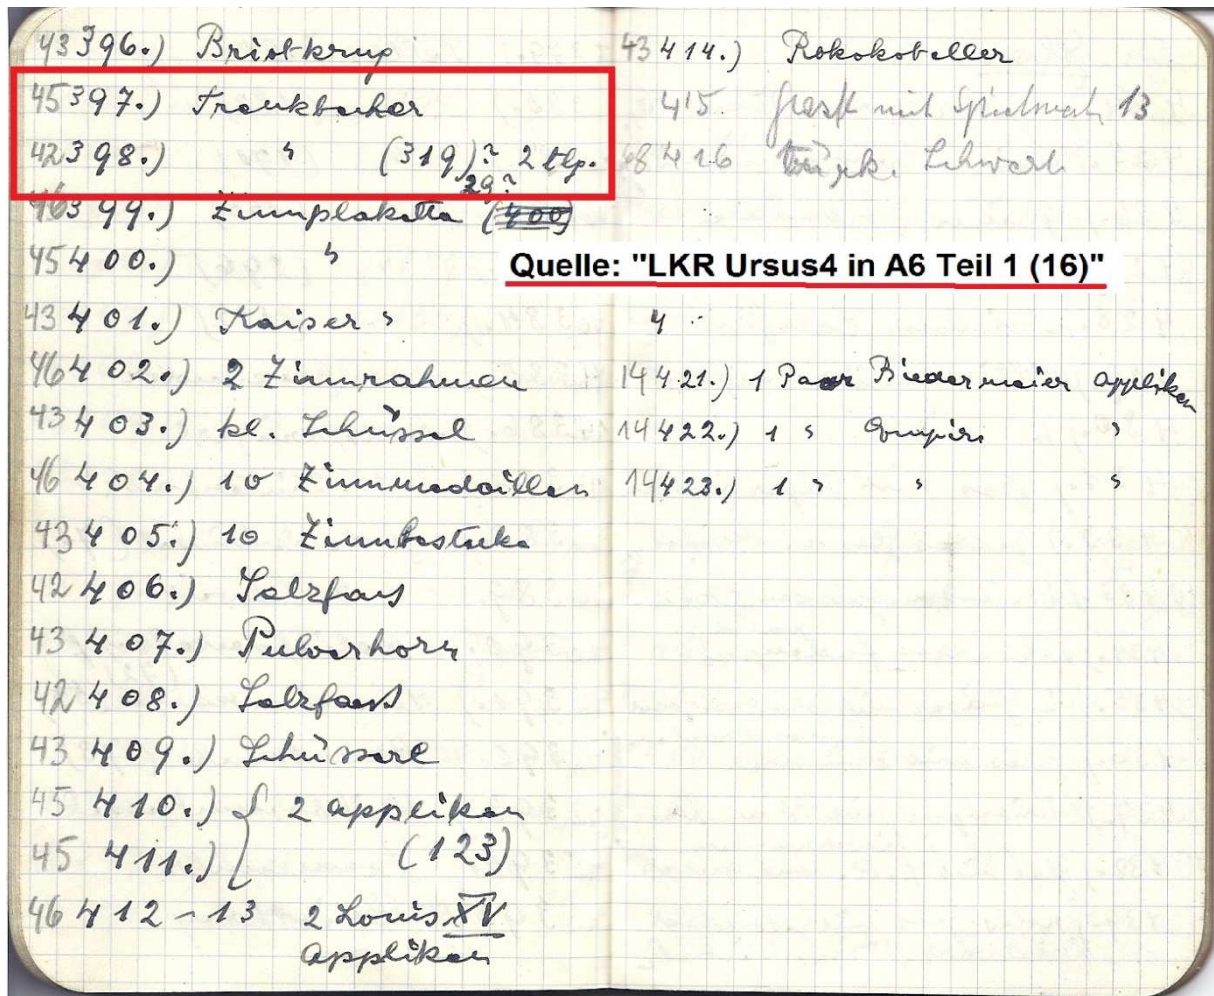 43 396.) Bristkrug
45 397.) Trankbecher
42 398.) " (319)? 2 tlg.
29?
46 399.) Zinnplakette (400)
45 400.) "
43 401.) Kaiser "
46 402.) 2 Zinnrahmen
43 403.) kl. Schüssel
46 404.) 10 Zinnmedaillen
43 405.) 10 Zinnbestecke
42 406.) Salzfass
43 407.) Pulverhorn
42 408.) Salzfass
43 409.) Schüsserl
45 410.) { 2 Appliken
45 411.) (123)
46 412-13 2 Louis XV
Appliken
43 414.) Rokokoteller
415. mit 13
48 416 türk. Schwert
Quelle: "LKR Ursus4 in A6 Teil 1 (16)"
4
14 421.) 1 Paar Biedermeier Appliken
14 422.) 1 " Empire "
14 423.) 1 " " "